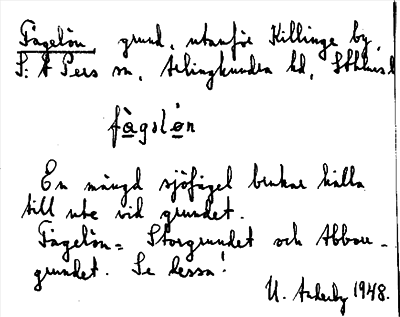 Fågelön grund, utanför Killinge by,
S:t Pers sn, Aekingkunda hd, Sthlms l
fàgslòn
En mängd sjöfågel brukar hålla
till ute vid grundet.
Fågelön = Storgrundet och Abborr-
grundet. Se dessa!
U. 1948.